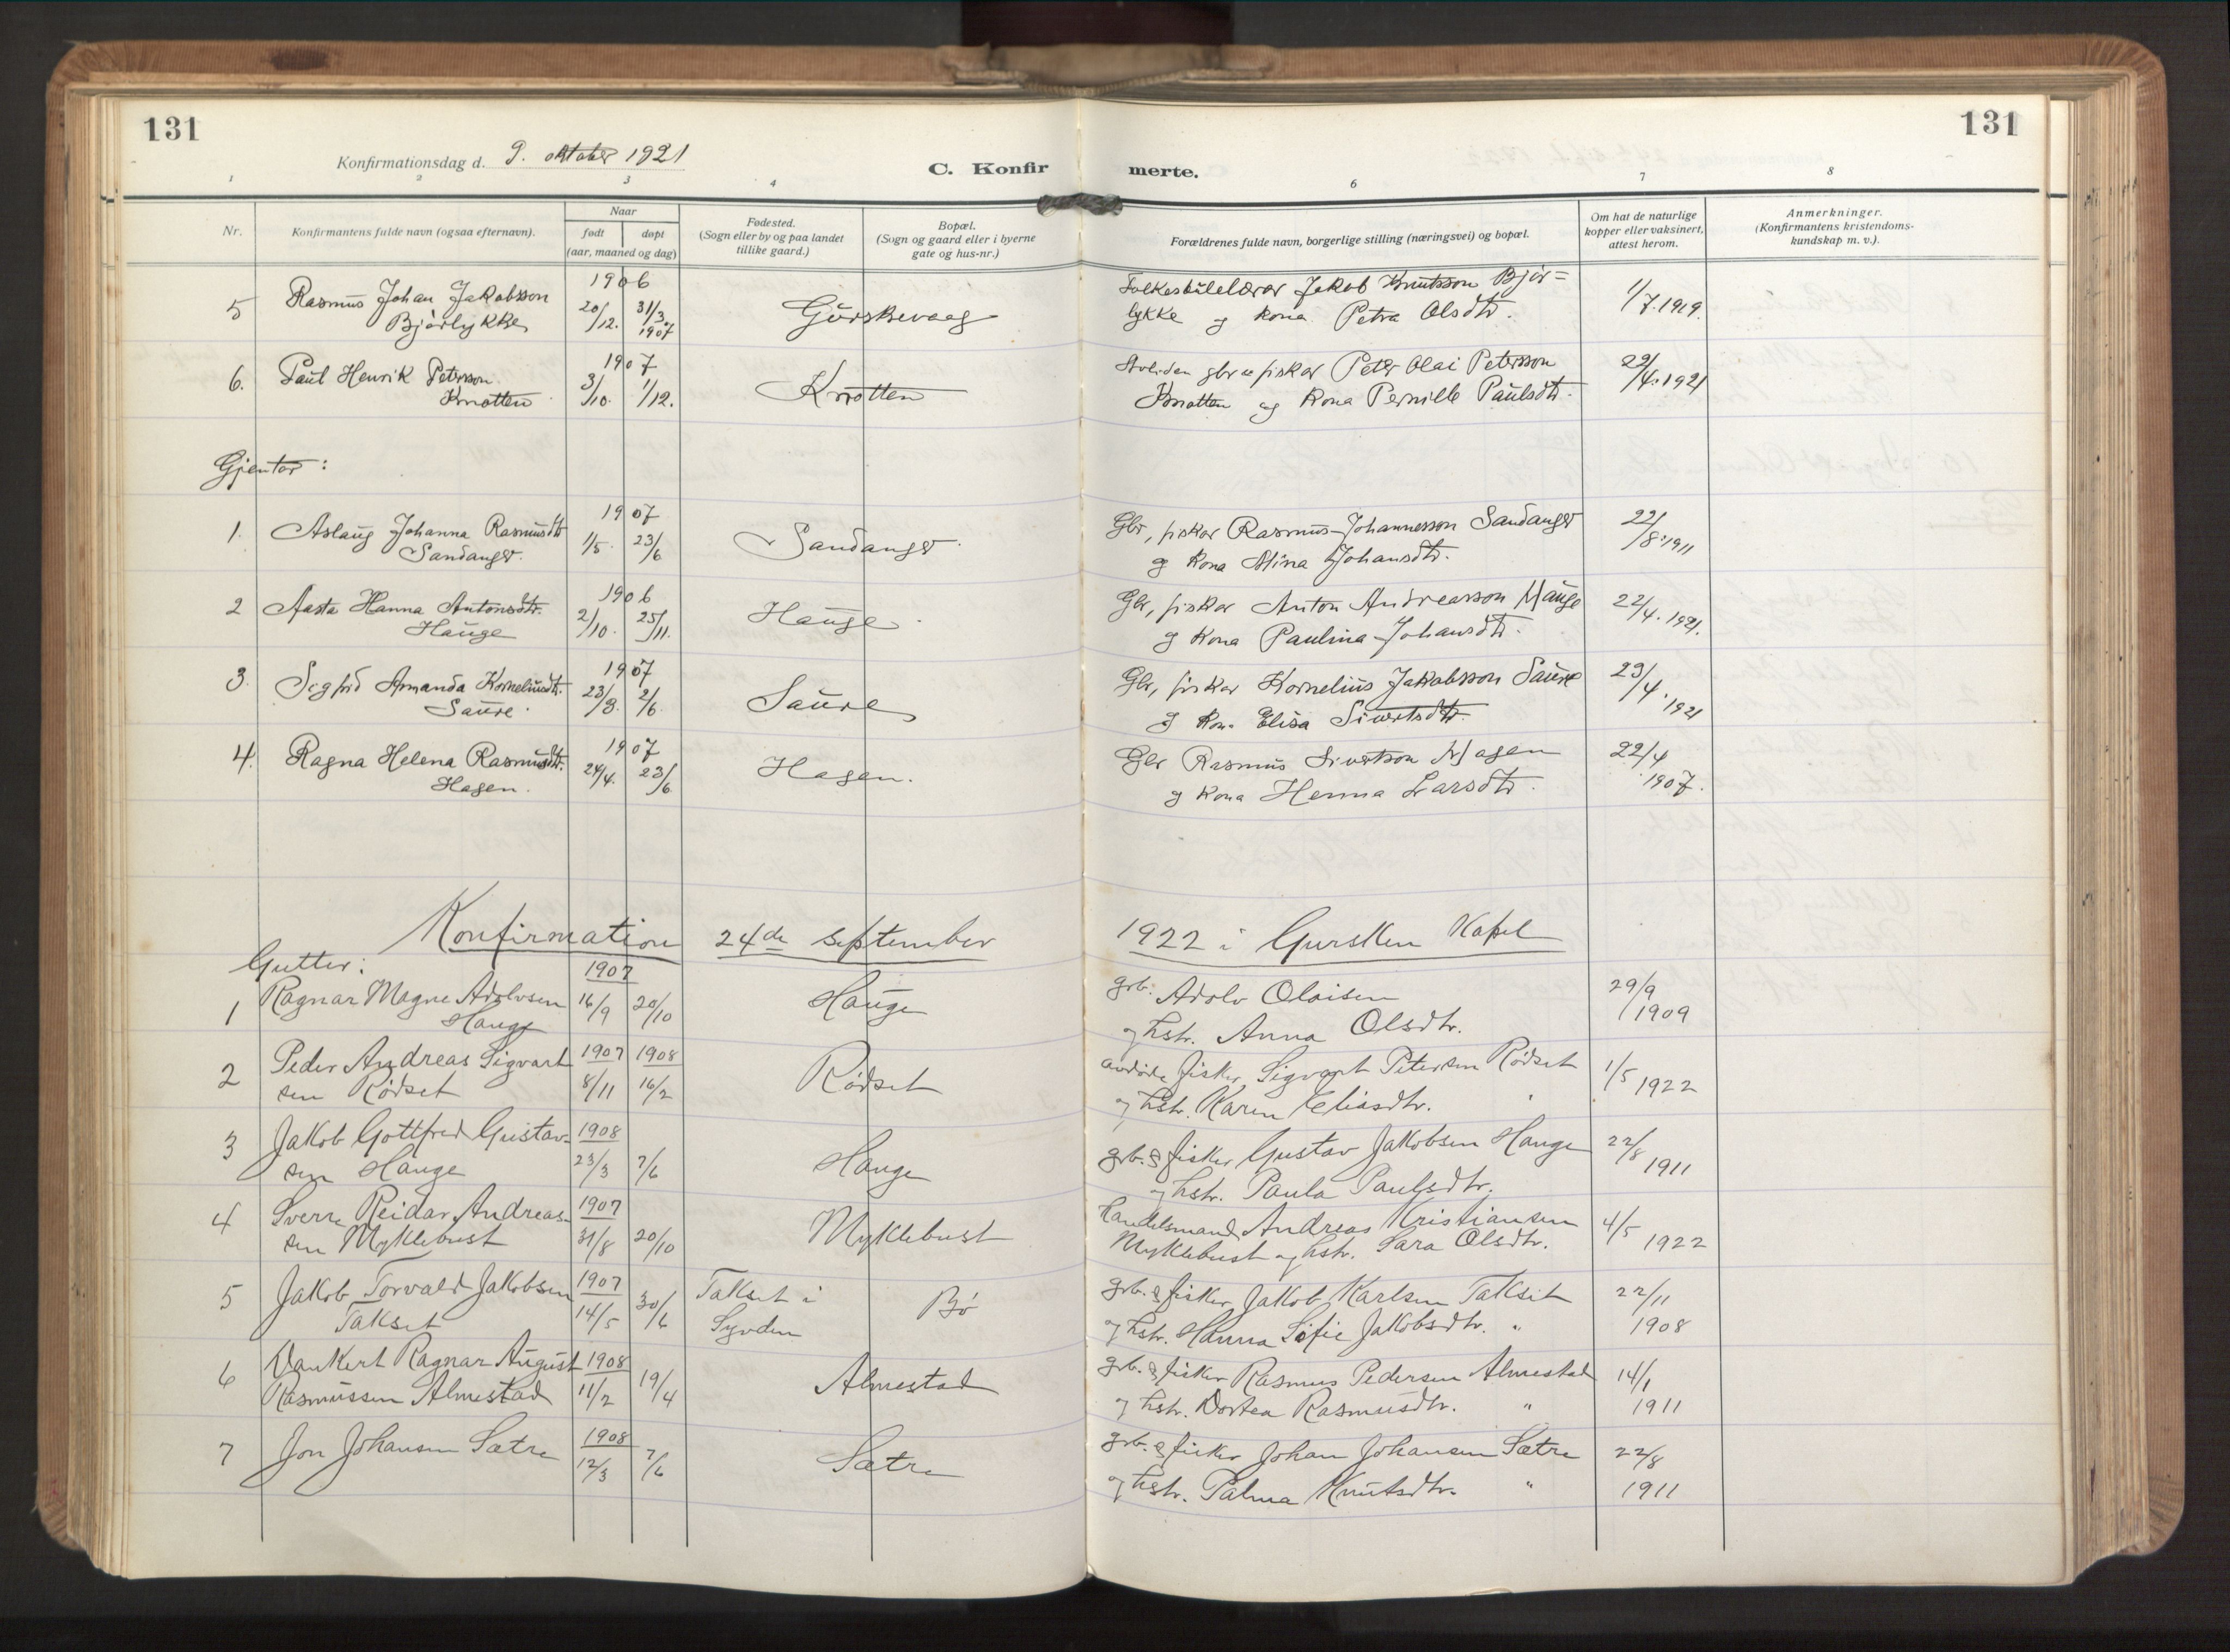 131
131
Konfirmationsdag d. 9. oktober 1921
C. Konfir
merte.
1 2 3 4 6 7 8
Nr.
Konfirmantens fulde navn (ogsaa efternavn).
Naar
født døpt
(aar, maaned og dag)
Fødested.
(Sogn eller by og paa landet
tillike gaard.)
Bopæl.
(Sogn og gaard eller i byerne
gate og hus-nr.)
Forældrenes fulde navn, borgerlige stilling (næringsvei) og bopæl.
Om hat de naturlige
kopper eller vaksinert,
attest herom.
Anmerkninger.
(Konfirmantens kristendoms-
kundskap m. v.).
5 Rasmus Johan Jakobsson 1906 Folkeskulelærar Jakob Knutsson Bjør=
Bjørlykke 20/12. 31/3. 1907 Gurskevaag lykke og kona Petra Olsdtr. 1/7.1919.
6. Paul Henrik Petersson 1907 gbr og fiskar Peter Olai Petersson 29/4.1921
Knotten 3/10. 1/12. Knotten Knotten og kona Pernille Paulsdtr.
Gjentor:
1. Aslaug Johanna Rasmusdtr 1907 Gbr, fiskar Rasmus Johannesson Sandanger 22/8.1911
Sandanger. 1/5. 23/6 Sandanger. og kona Alina Johansdtr.
2 Aasta Hanna Antonsdtr. 1906 Gbr, fiskar Anton Andreasson Hauge 22/4.1921.
Hauge 2/10. 25/11. Hauge. og kona Paulina Johansdtr.
3. Sigfrid Amanda Korneliusdtr. 1907 Gbr, fiskar Kornelius Jakobsson Saure 29/4.1921
Saure. 23/3. 2/6. Saure og kona Elisa Sivertsdtr.
4. Ragna Helena Rasmusdtr. 1907 Gbr Rasmus Sivertson Hagen 22/4
Hagen. 24/4. 23/6. Hagen. og kona Henna Larsdtr. 1907.
Konfirmation 24de september 1922 i Gursken Kapel
Gutter:
1 Ragnar Magne Adolvsen 1907 16/9 20/10 Hauge grb. Adolv Olaisen 29/9
Hauge og hstr. Anna Olsdtr. 1909
2 Peder Andreas Sigvart 1907 1908 Rødset avdøde fisker Sigvart Petersen Rødset 1/5 1922
sen Rødset 8/11 16/2 og hstr. Karen Eliasdtr. "
3 Jakob Gottfred Gustav- 1908 Hauge grb. & fisker Gustav Jakobsen Hauge 22/8 1911
sen Hauge 23/3 7/6 og hstr. Paula Paulsdtr.
4 Sverre Reidar Andreas- 1907 Myklebust Handelsmand Andreas Kristiansen 4/5 1922
sen Myklebust 31/8 20/10 Myklebust og hstr. Sara Olsdtr.
5 Jakob Torvald Jakobsen 1907 Takset i Bø grb. & fisker Jakob Karlsen Takset 22/11
Takset 14/5 30/6 Syvden og hstr. Hanna Sofie Jakobsdtr. " 1908
6 Vankert Ragnar August 1908 Almestad grb. & fisker Rasmus Pedersen Almestad 14/1
Rasmussen Almestad 11/2 19/4 og hstr. Dortea Rasmusdtr. " 1911
7 Jon Johansen Sætre 1908 Sætre grb. & fisker Johan Johansen Sætre 22/8
12/3 7/6 og hstr. Palma Knutsdtr. " 1911